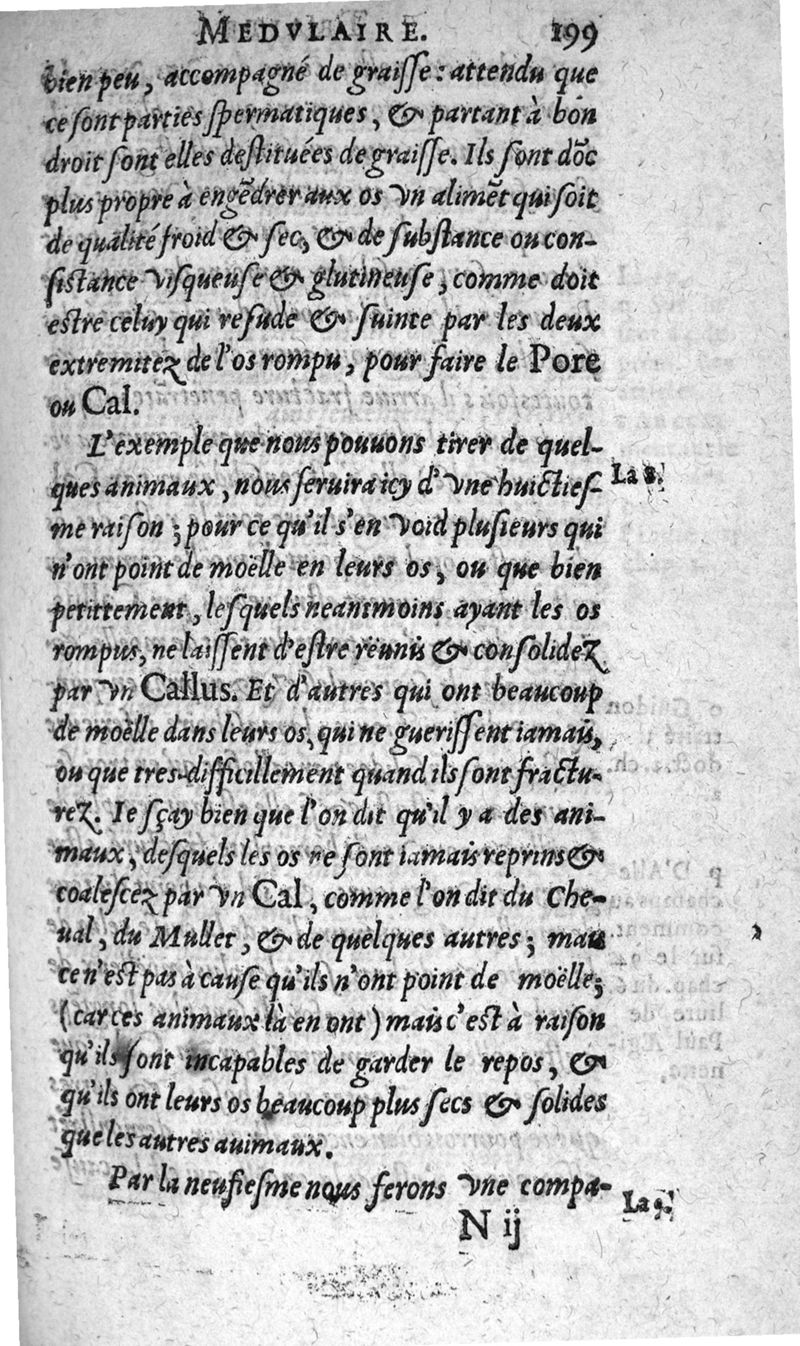 MEDVLAIRE. 199
bien peu, accompagné de graiſſe: attendu que
ce ſont parties ſpermatiques, & partant à bon
droit ſont elles deſtituées de graiſſe. Ils ſont dõc
plus propre à engẽdrer aux os vn alimẽt qui ſoit
de qualité froid & ſec, & de ſubſtance ou con-
ſiſtance viſqueuſe & glutineuſe, comme doit
eſtre celuy qui reſude & ſuinte par les deux
extremitez de l'os rompu, pour faire le Pore
ou Cal.
L'exemple que nous pouuons tirer de quel-
ques animaux, nous ſeruira icy d'vne huictieſ- La 8.
me raiſon; pour ce qu'il s'en void pluſieurs qui
n'ont point de moëlle en leurs os, ou que bien
petittement, leſquels neantmoins ayant les os
rompus, ne laiſſent d'eſtre reünis & conſolidez
par vn Callus. Et d'autres qui ont beaucoup
de moëlle dans leurs os, qui ne gueriſſent iamais,
ou que tres-difficillement quand ils ſont fractu-
rez. Ie ſçay bien que l'on dit qu'il y a des ani-
maux, deſquels les os ne ſont iamais reprins &
coaleſcez par vn Cal, comme l'on dit du Che-
ual, du Mullet, & de quelques autres; mais
ce n'eſt pas à cauſe qu'ils n'ont point de moëlle;
(car ces animaux là en ont) mais c'eſt à raiſon
qu'ils ſont incapables de garder le repos, &
qu'ils ont leurs os beaucoup plus ſecs & ſolides
que les autres auimaux.
Par la neufieſme nous ferons vne compa- La 9.
N ij